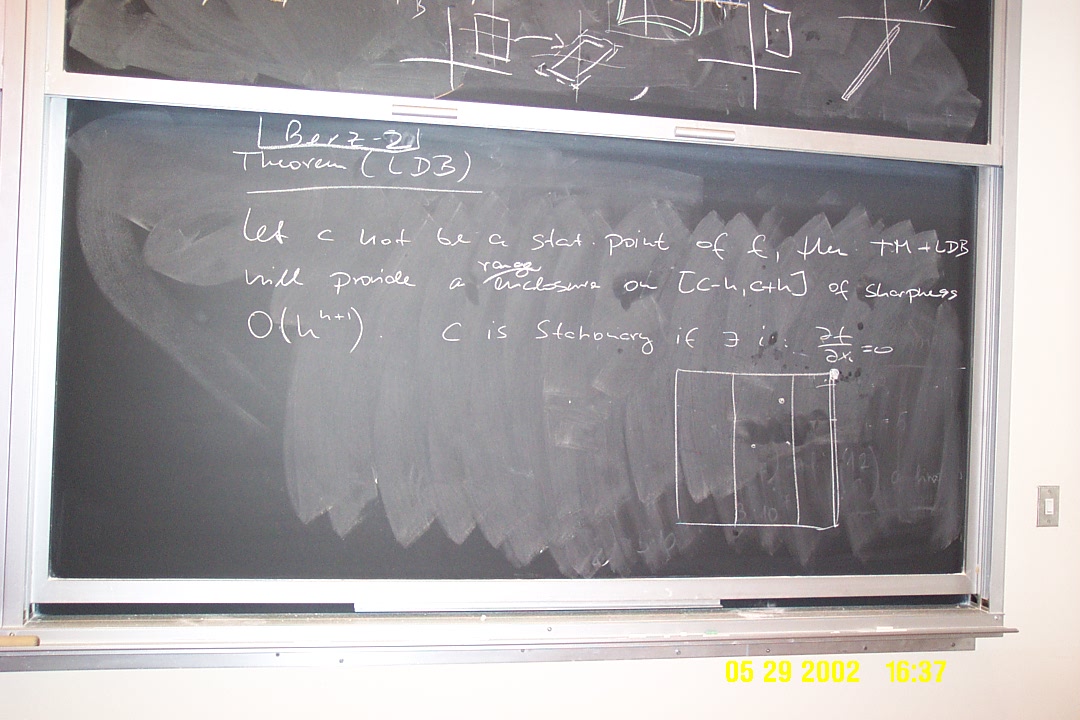 Berz-2
Theorem (LDB)
Let c not be a stat. point of f, then TM+LDB
range
will provide a enclosure on [c-h, c+h] of sharpness
O(h^{n+1}). C is Stationary if ∃ i: ∂f/∂x_i = 0
05 29 2002 16:37